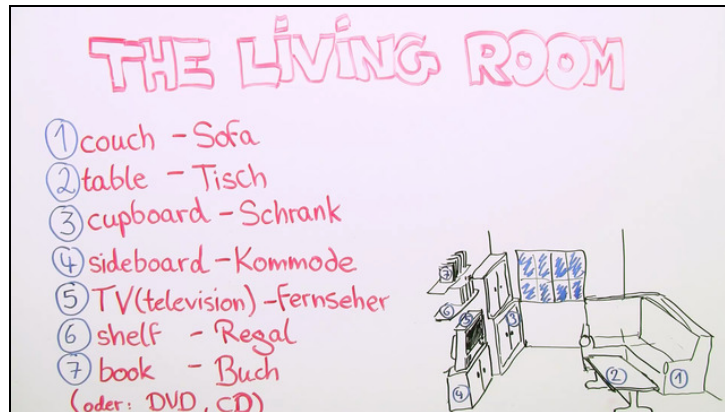 THE LiViNG ROOM
① couch - Sofa
② table - Tisch
③ cupboard - Schrank
④ sideboard - Kommode
⑤ TV (television) - Fernseher
⑥ shelf - Regal
⑦ book - Buch
(oder: DVD, CD)
⑦
⑥
⑤
③
④
②
①